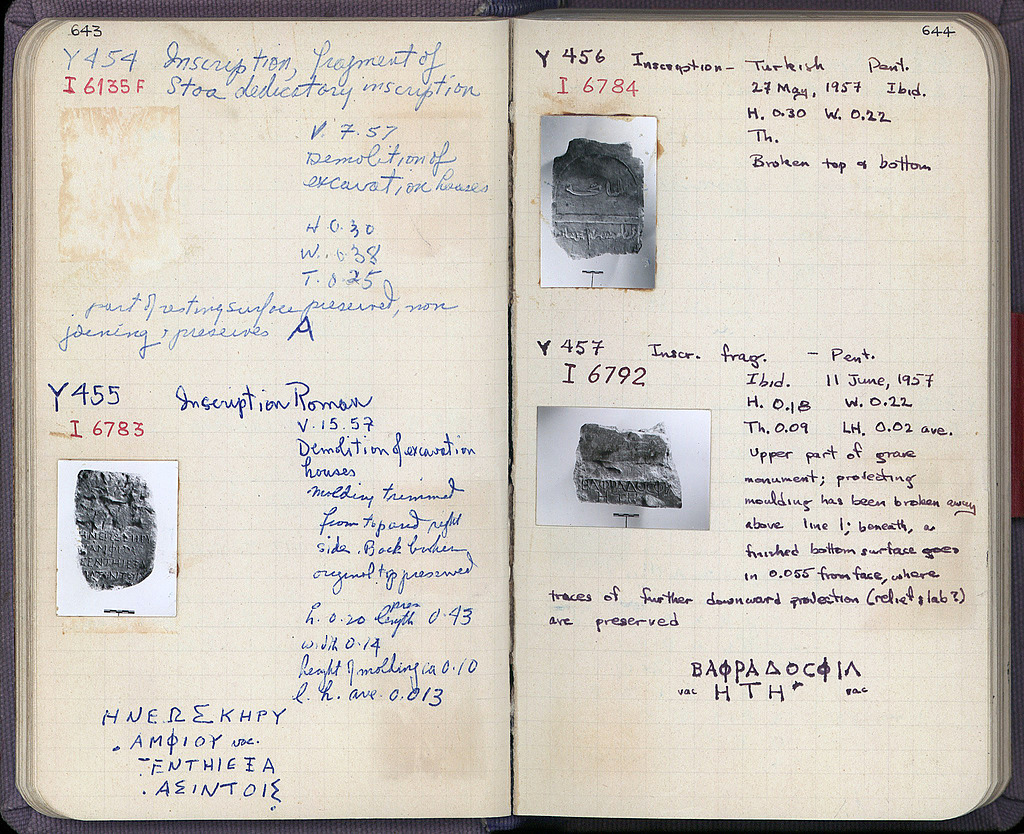 643
Y 454 Inscription, fragment of
I 6135 F Stoa dedicatory inscription
V. 7.57
Demolition of
excavation houses
H 0.30
W. 0.38
T. 0.25
part of resting surface preserved, non
joining; preserves A
Y 455 Inscription Roman
I 6783
V. 15.57
Demolition of excavation
houses
molding trimmed
from top and right
side. Back broken
original top preserved
h. 0.20 pres length 0.43
width 0.14
height of molding ca 0.10
l. h. ave. 0.013
ΗΝΕΩΣΚΗΡΥ
. ΑΜΦΙΟΥ vac.
ΕΝΤΗΙΕΞΑ
. ΑΣΙΝΤΟΙΣ
644
Y 456 Inscription – Turkish Pent.
I 6784 27 May, 1957 Ibid.
H. 0.30 W. 0.22
Th.
Broken top & bottom
Y 457 Inscr. frag. – Pent.
I 6792 Ibid. 11 June, 1957
H. 0.18 W. 0.22
Th. 0.09 LH. 0.02 ave.
Upper part of grave
monument; projecting
moulding has been broken away
above line 1; beneath, a
finished bottom surface goes
in 0.055 from face, where
traces of further downward projection (relief slab?)
are preserved
ΒΑΦΡΑΔΟCΦΙΛ
vac ΗΤΗ vac